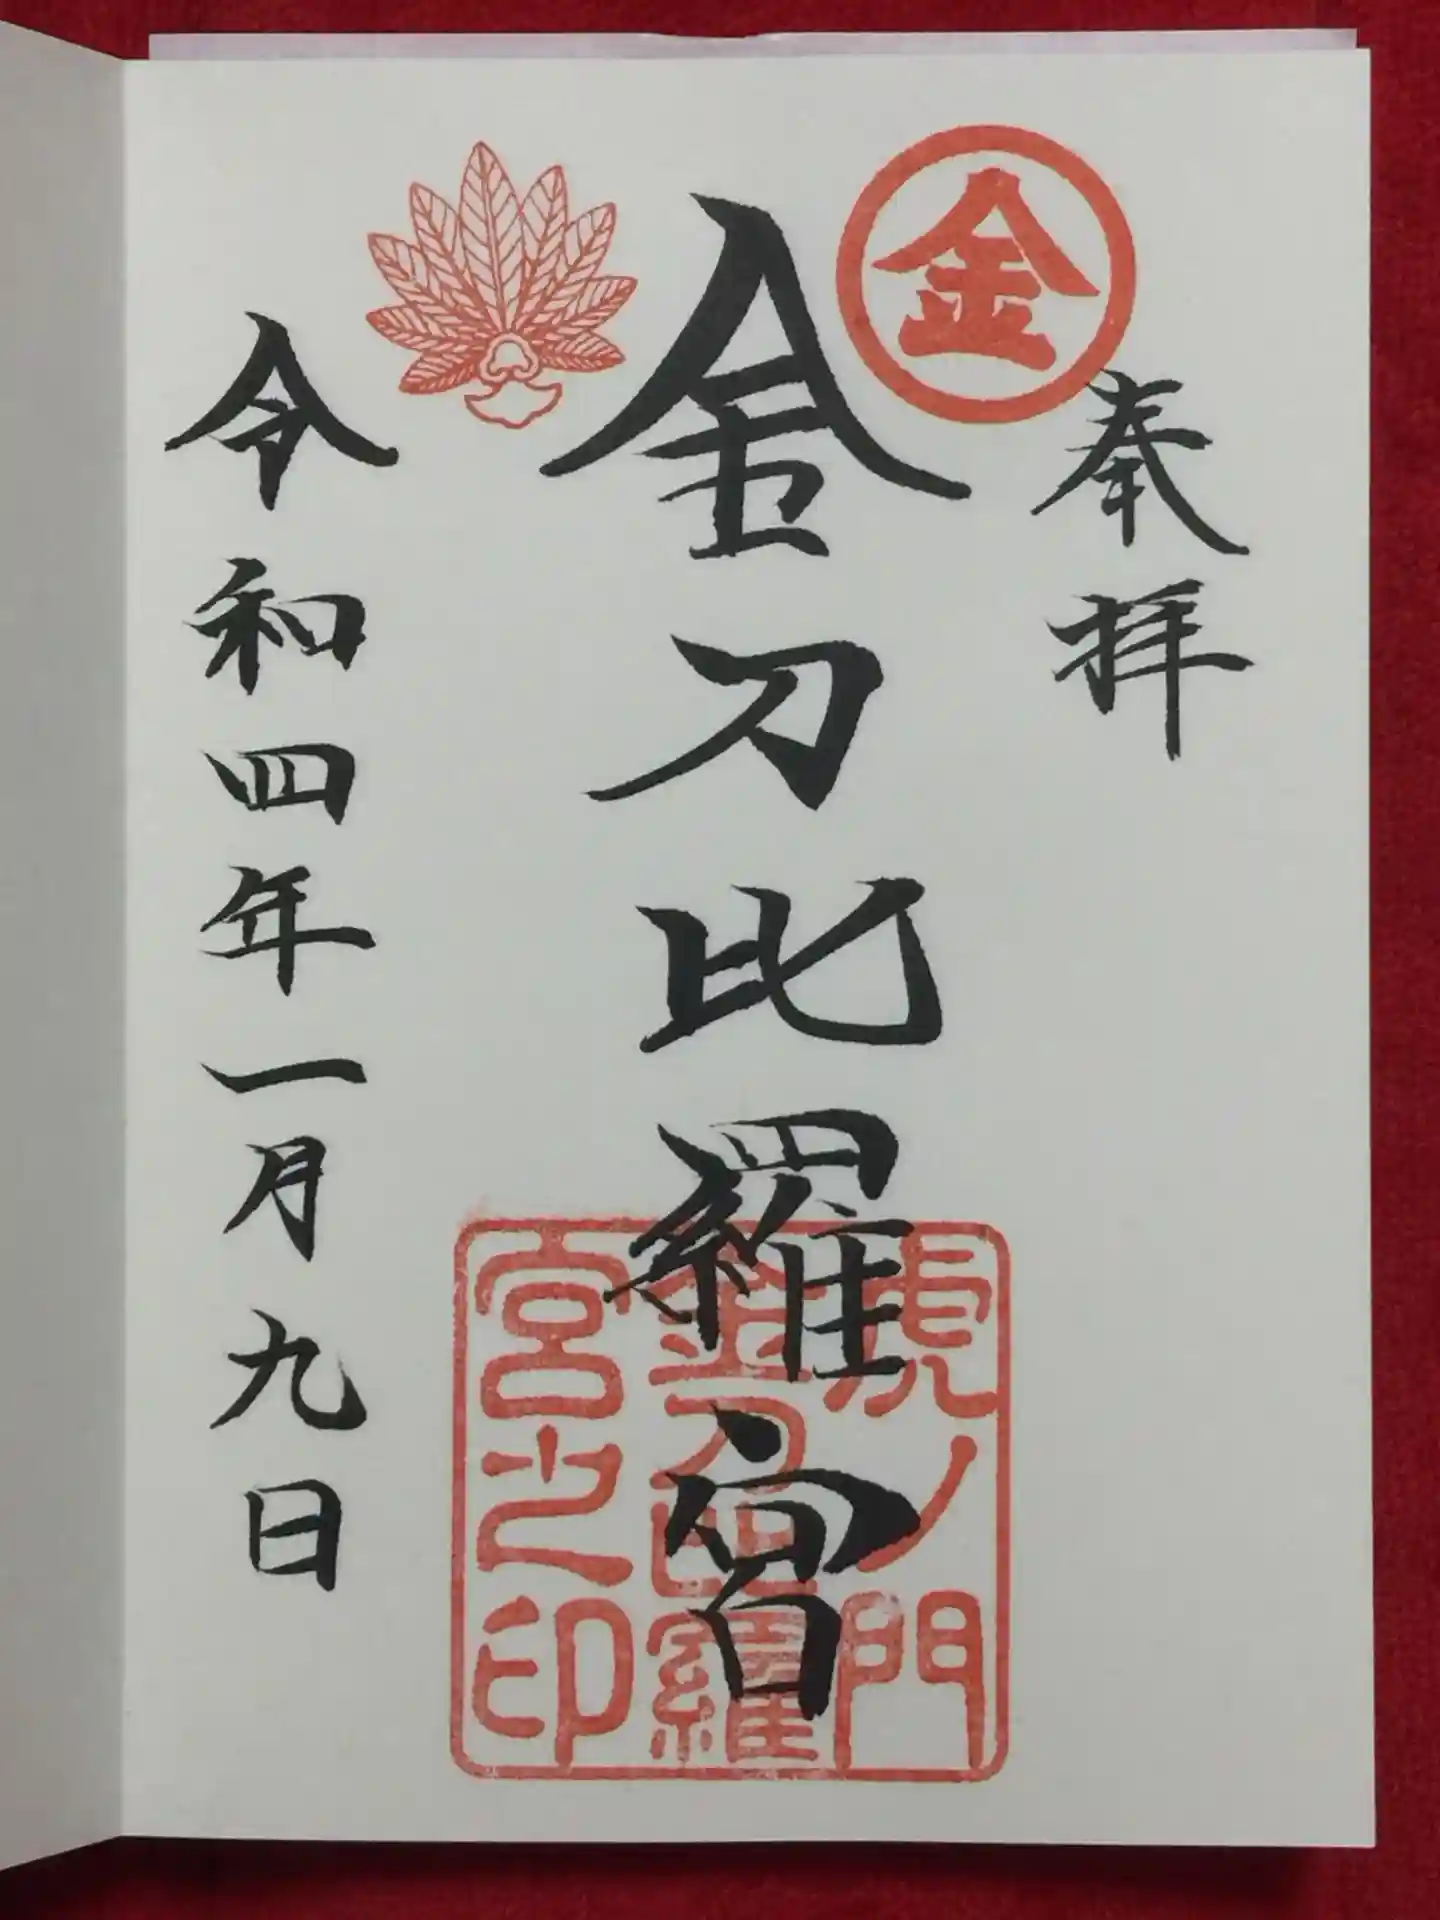 奉拝
金
金刀比羅宮
虎ノ門
金刀比羅
宮之印
令和四年一月九日